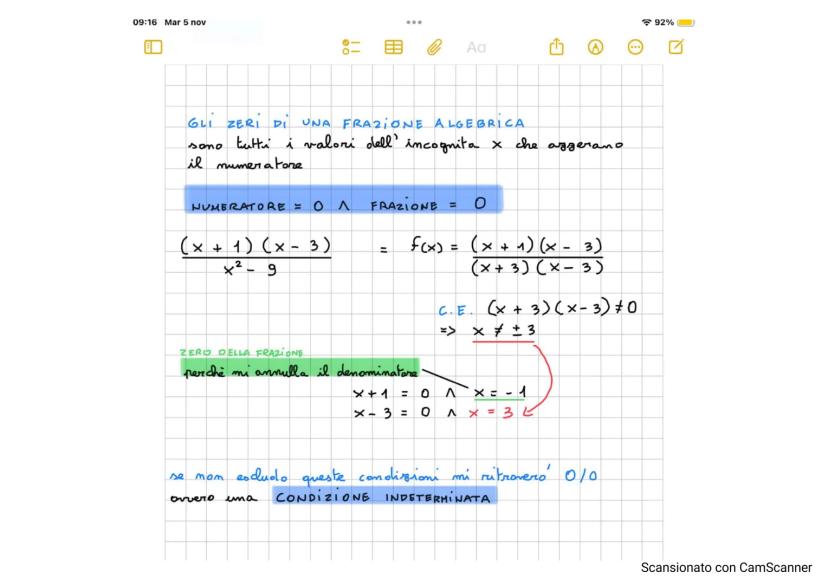 09:16 Mar 5 nov
92%
Aa
GLI ZERI DI UNA FRAZIONE ALGEBRICA
sono tutti i valori dell' incognita x che azzerano
il numeratore
NUMERATORE = 0 ∧ FRAZIONE = 0
(x + 1)(x - 3) / x² - 9 = f(x) = (x + 1)(x - 3) / (x + 3)(x - 3)
C.E. (x + 3)(x - 3) ≠ 0
=> x ≠ ± 3
ZERO DELLA FRAZIONE
perchè mi annulla il denominatore
x + 1 = 0 ∧ x = - 1
x - 3 = 0 ∧ x = 3
se non escludo queste condizioni mi ritroverò 0/0
ovvero una CONDIZIONE INDETERMINATA
Scansionato con CamScanner